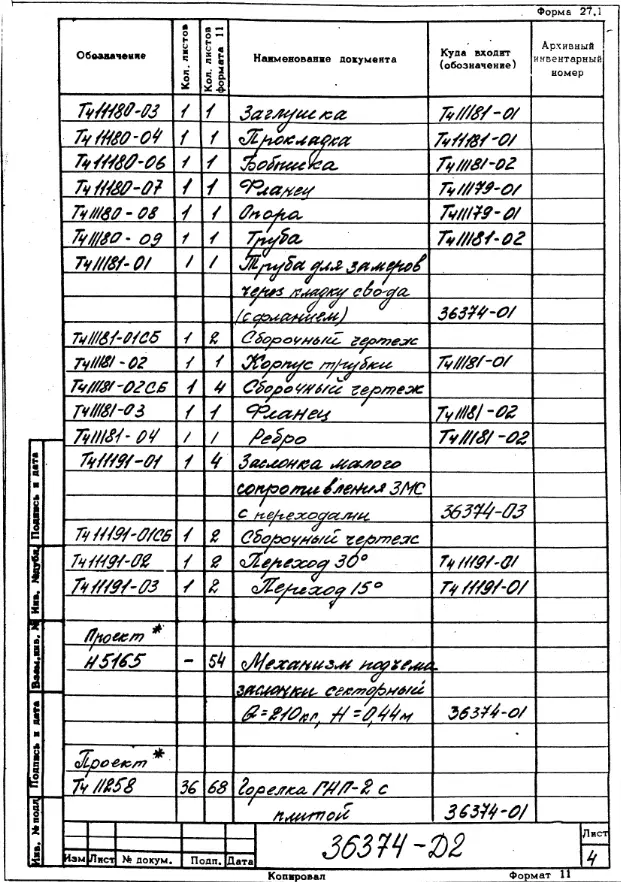 Форма 27.1
Обозначение Кол. листов Кол. листов формата 11 Наименование документа Куда входит (обозначение) Архивный инвентарный номер
Тч11180-03 1 1 Заглушка Тч11181-01
Тч11180-04 1 1 Прокладка Тч11181-01
Тч11180-06 1 1 Бобышка Тч11181-02
Тч11180-07 1 1 Фланец Тч11179-01
Тч11180-08 1 1 Опора Тч11179-01
Тч11180-09 1 1 Труба Тч11181-02
Тч11181-01 1 1 Труба для замеров
через кладку свода
(с фланцем) 36374-01
Тч11181-01СБ 1 2 Сборочный чертеж
Тч11181-02 1 1 Корпус трубки Тч11181-01
Тч11181-02СБ 1 4 Сборочный чертеж
Тч11181-03 1 1 Фланец Тч11181-02
Тч11181-04 1 1 Ребро Тч11181-02
Тч11191-01 1 4 Заслонка малого
сопротивления ЗМС
с переходами 36374-03
Тч11191-01СБ 1 2 Сборочный чертеж
Тч11191-02 1 2 Переход 30° Тч11191-01
Тч11191-03 1 2 Переход 15° Тч11191-01
Проект *
Н5165 - 54 Механизм подъема
заслонки секторный
Q=210кг, H=0,44м 36374-01
Проект *
Тч 11258 36 68 Горелка ГНП-2 с
плитой 36374-01
Инв. № подл. Подпись и дата Взам.инв. № Инв. № дубл. Подпись и дата
36374-Д2
Лист
4
Изм Лист № докум. Подп. Дата
Копировал Формат 11